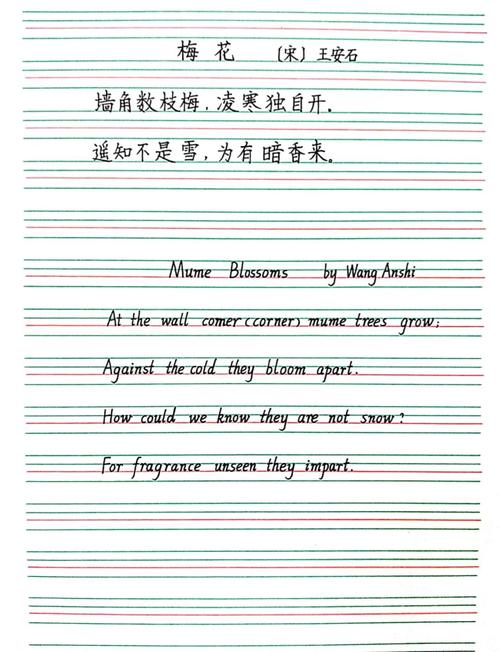 梅花 〔宋〕王安石
墙角数枝梅，凌寒独自开。
遥知不是雪，为有暗香来。
Mume Blossoms by Wang Anshi
At the wall comer (corner) mume trees grow;
Against the cold they bloom apart.
How could we know they are not snow?
For fragrance unseen they impart.